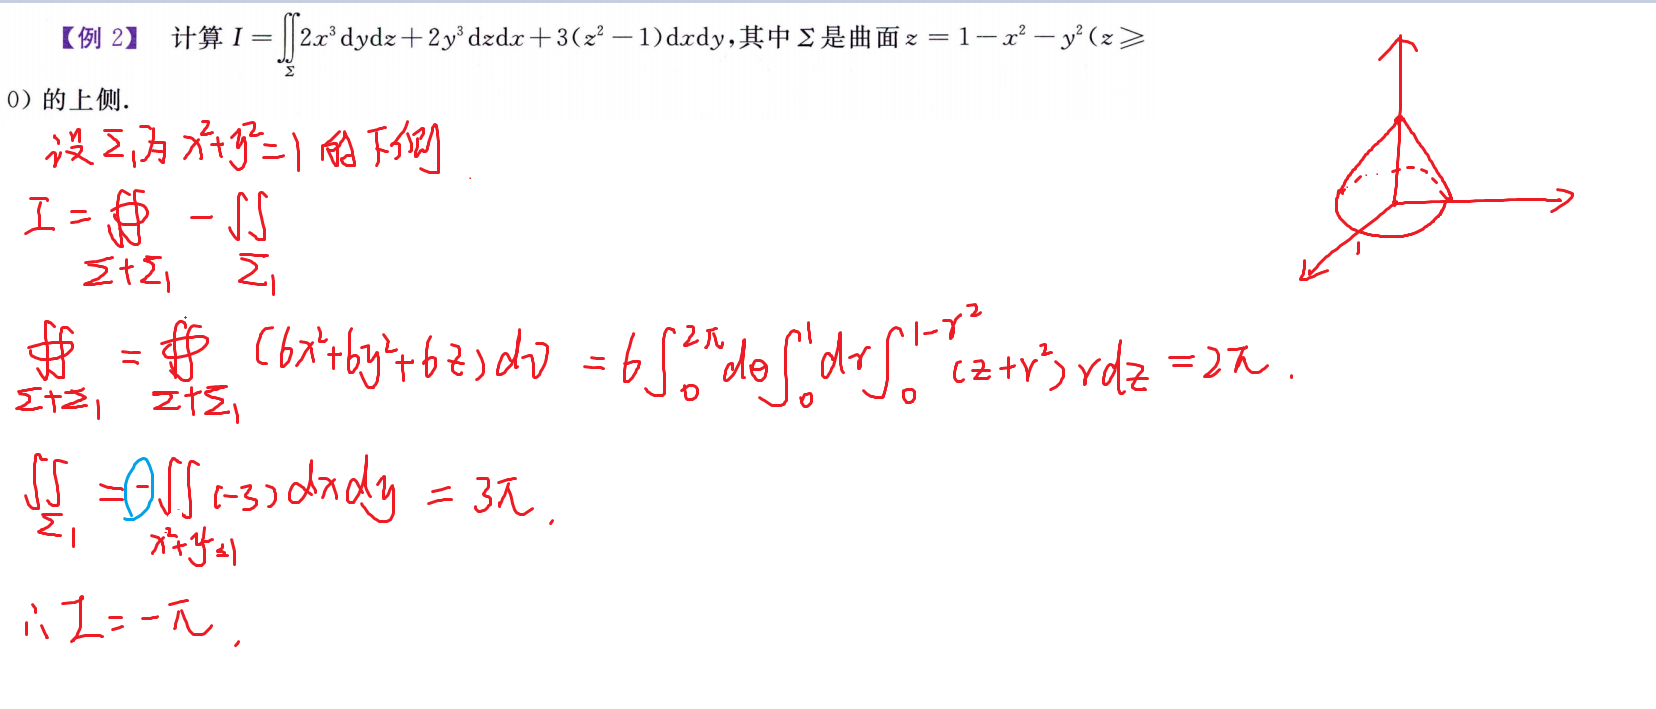 【例 2】 计算 I = ∬_Σ 2x³dydz + 2y³dzdx + 3(z² − 1)dxdy,其中 Σ 是曲面 z = 1 − x² − y² (z ⩾
0) 的上侧.
设 Σ₁为 x²+y²=1 的下侧
I = ∯_{Σ+Σ₁} − ∬_{Σ₁}
∯_{Σ+Σ₁} = ∯_{Σ+Σ₁} (6x²+6y²+6z)dv = 6∫₀^{2π}dθ∫₀^1 dr∫₀^{1-r²}(z+r²)rdz = 2π.
∬_{Σ₁} = −∬_{x²+y²≤1} (-3)dxdy = 3π.
∴ I = −π.
1